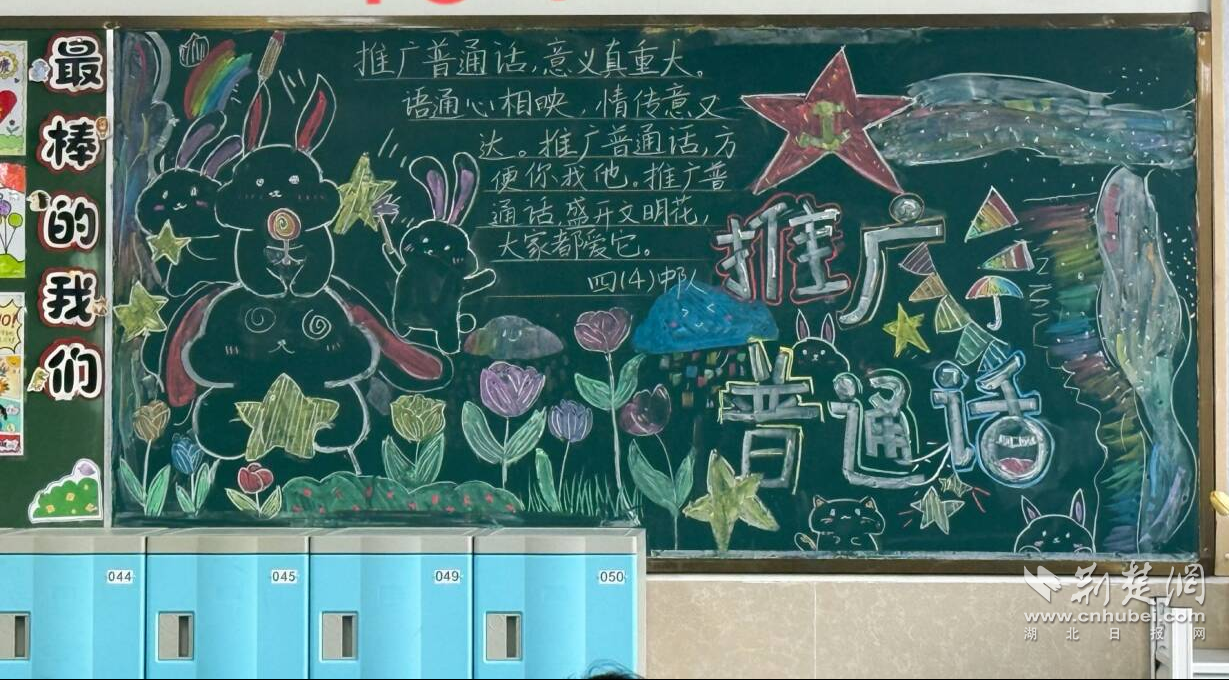 最棒的我们
推广普通话,意义真重大。
语通心相映,情传意又
达。推广普通话,方
便你我他。推广普
通话,盛开文明花,
大家都爱它。
四(4)中队
推广
普通话
044
045
049
050
荆楚网
www.cnhubei.com
湖北日报网